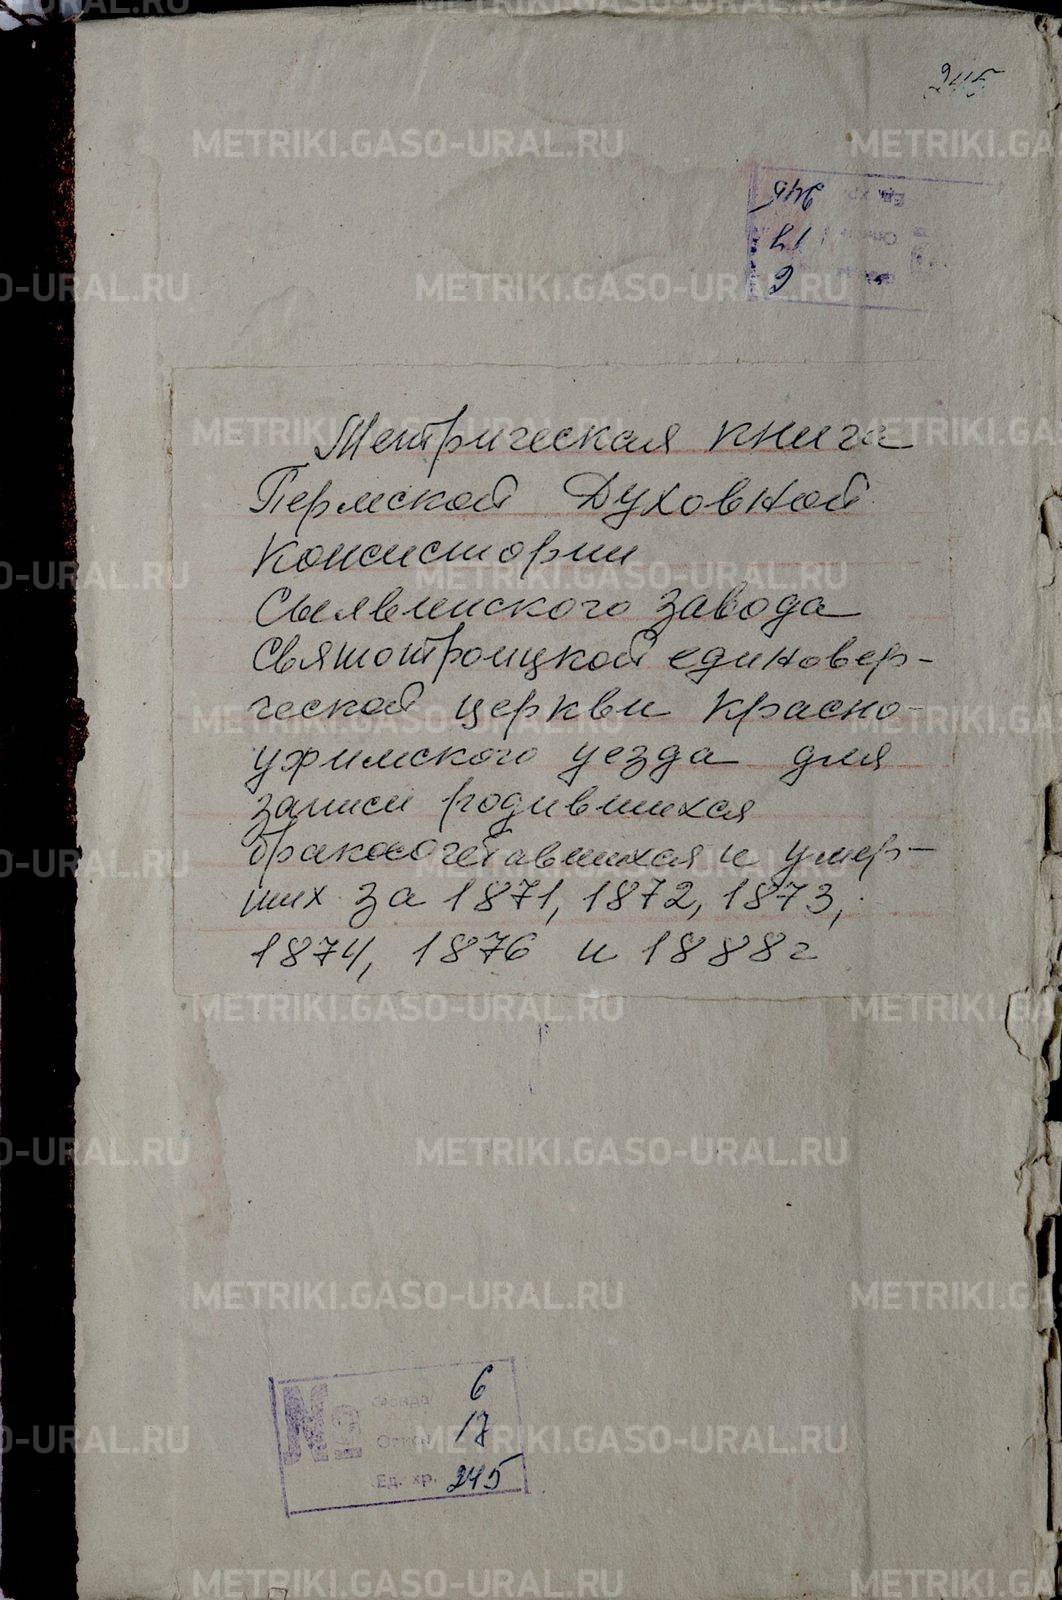 245
Ед. хр. 245
Описи 17
Фонда 6
Метрическая книга
Пермской Духовной
Консистории
Сылвинского завода
Святотроицкой единовер-
ческой церкви Красно-
уфимского уезда для
записи родившихся
бракосочетавшихся и умер-
ших за 1871, 1872, 1873,
1874, 1876 и 1888г
№ Фонда 6
Описи 17
Ед. хр. 245
METRIKI.GASO-URAL.RU